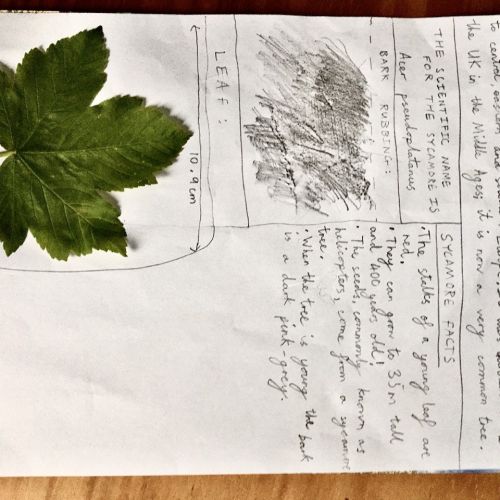 to central
the UK in the Middle Ages, it is now a very common tree.
THE SCIENTIFIC NAME
FOR THE SYCAMORE IS
Acer pseudoplatanus
BARK RUBBING:
LEAF:
10.9cm
SYCAMORE FACTS
• The stalks of a young leaf are
red.
• They can grow to 35m tall
and 400 years old!
• The seeds, commonly known as
helicopters, come from a sycamore
tree.
• When the tree is young the bark
is a dark pink-grey.